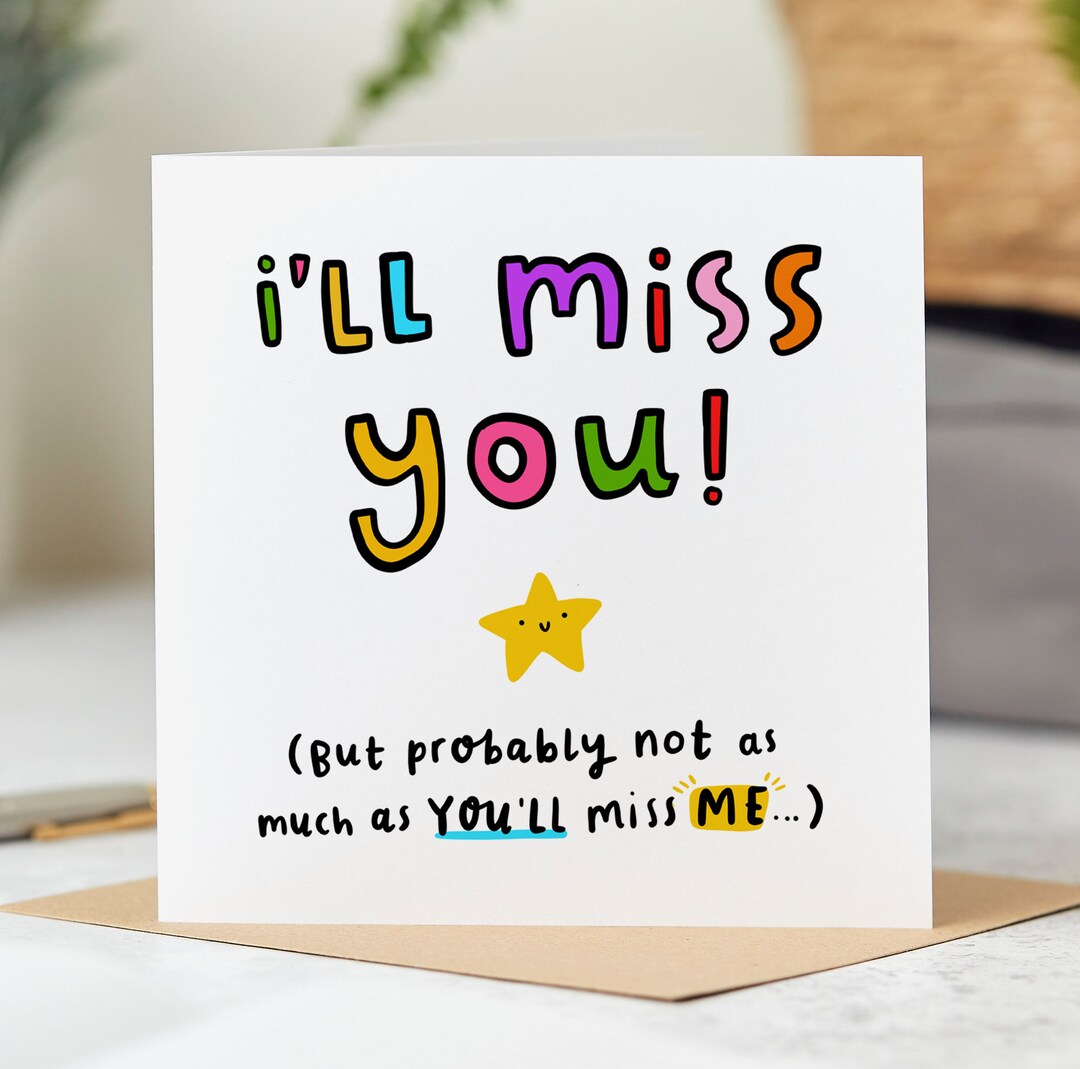 i'll miss
you!
(But probably not as
much as YOU'LL miss ME...)